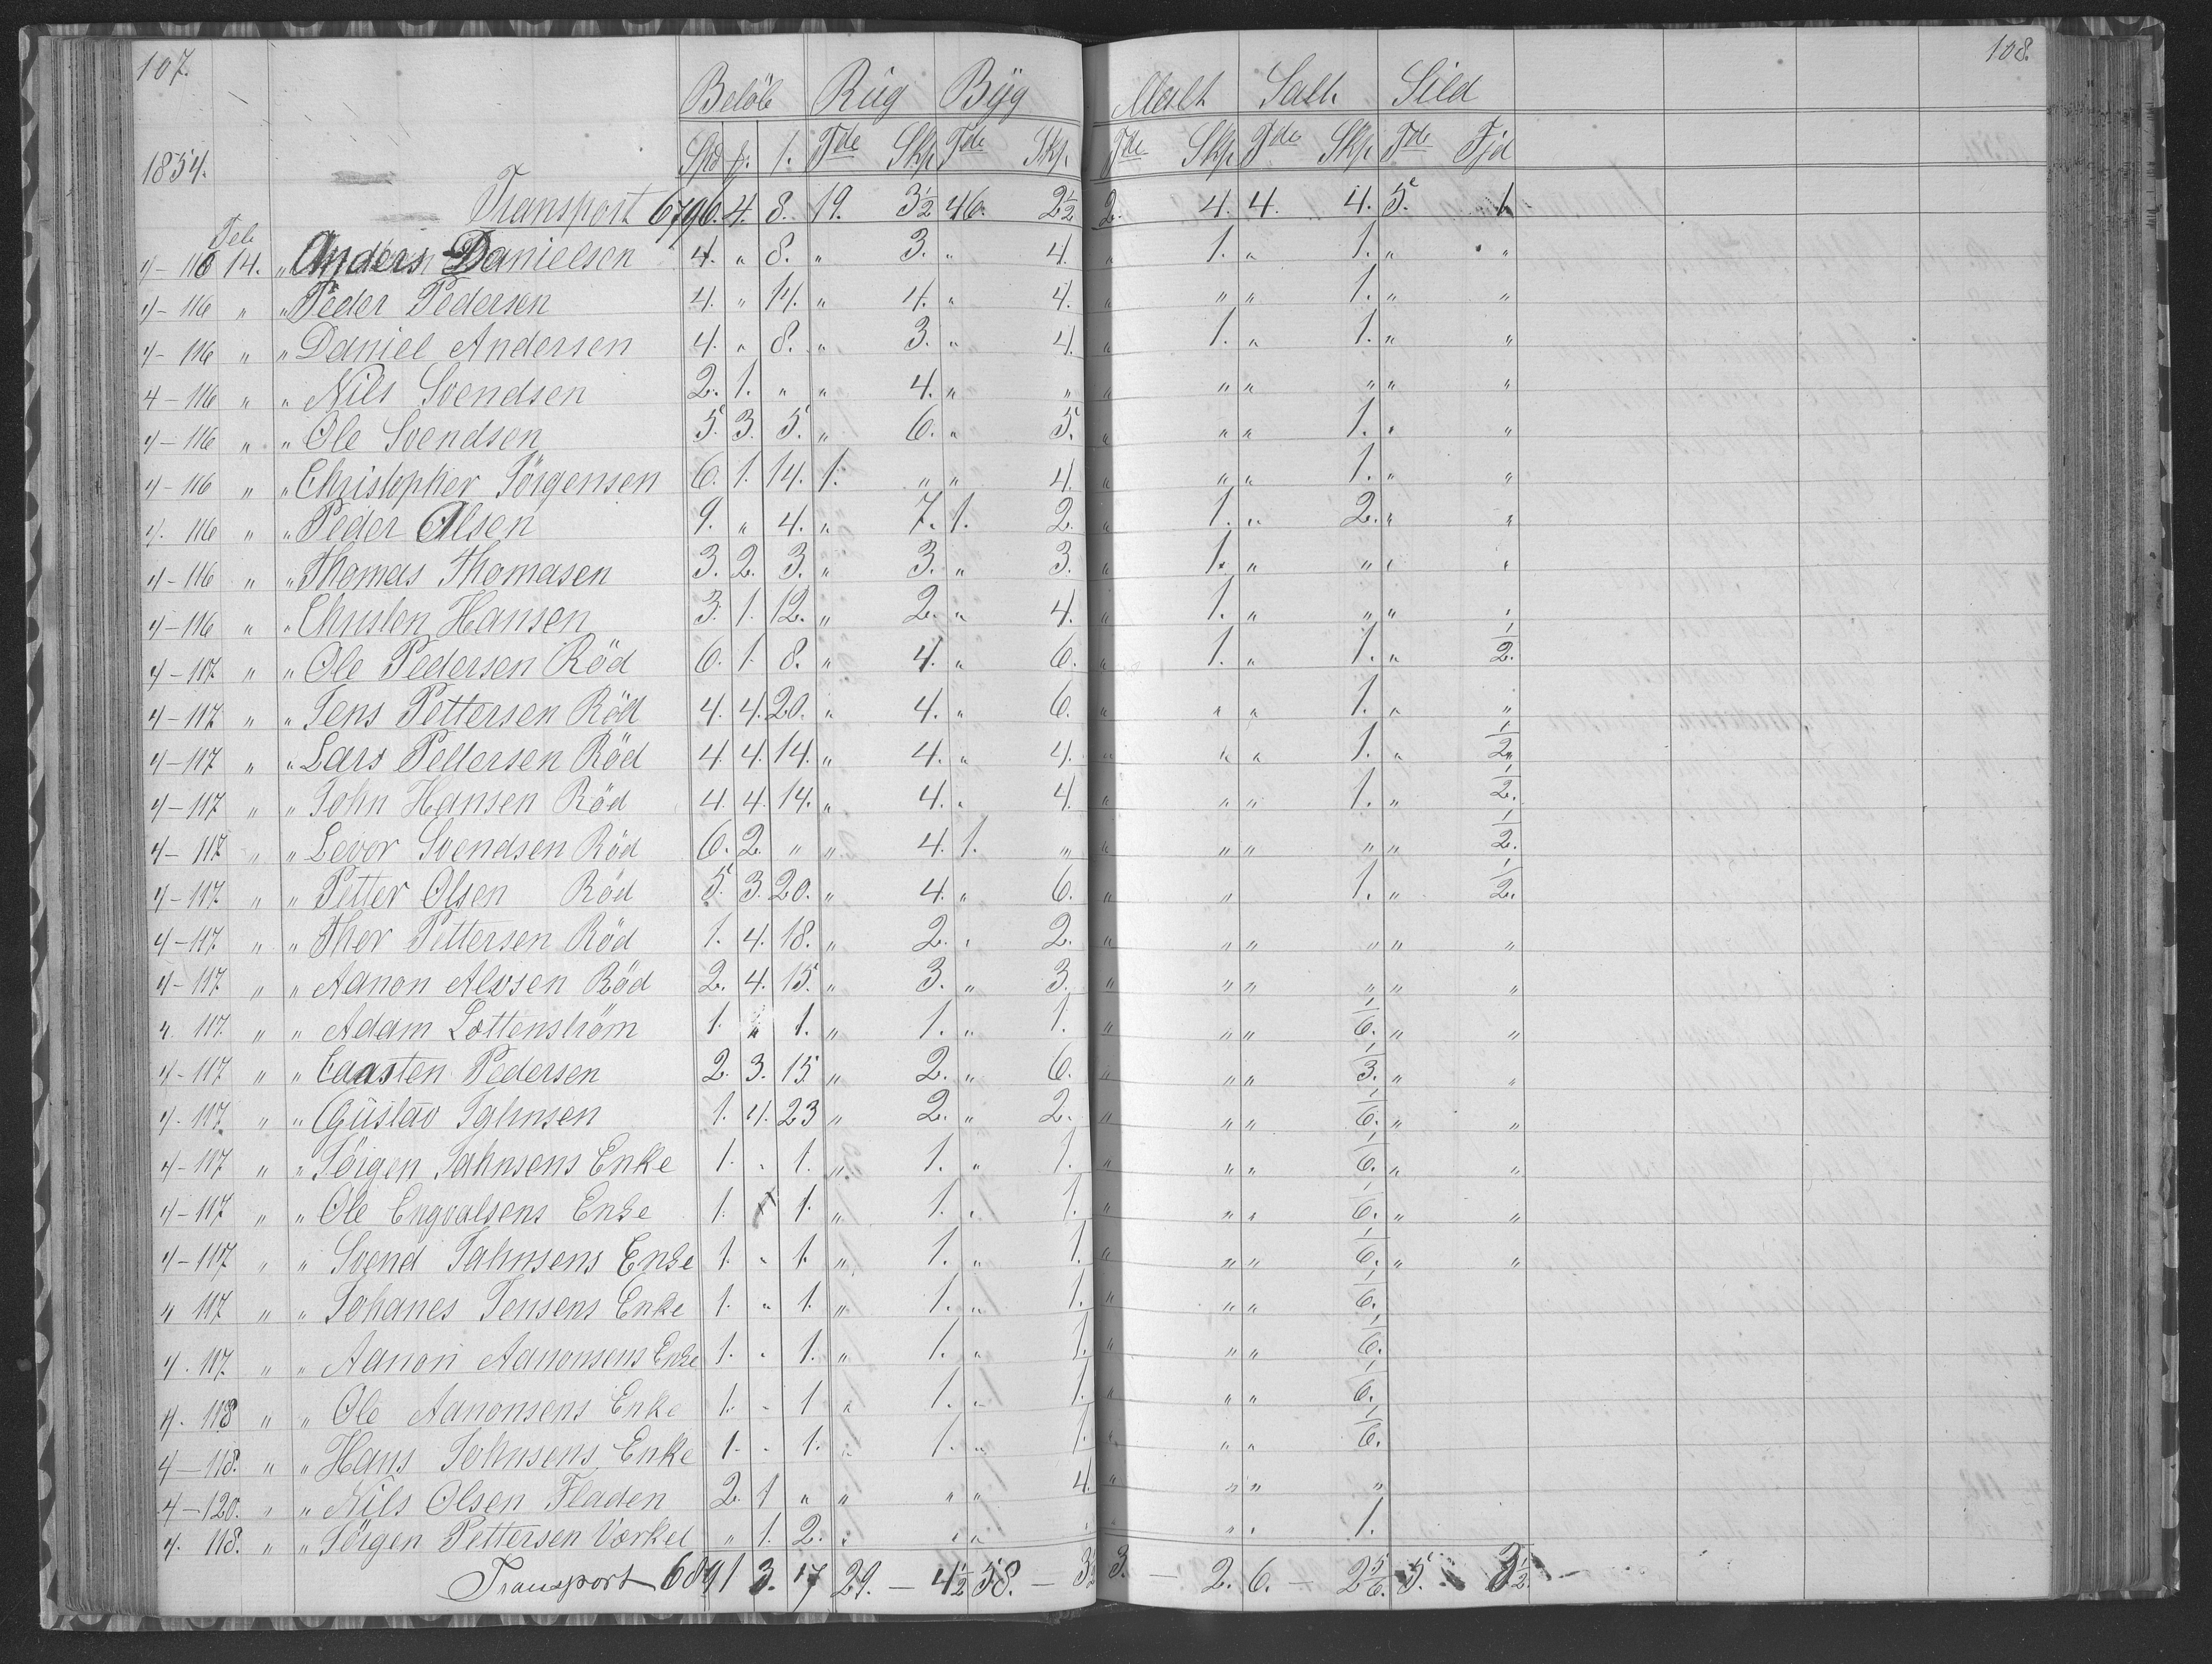 107. 108.
Belöb Rüg Byg Malt Salt Sild
1854. Spd β. Tde Skp Tde Skp. Tde Skp. Tde Skp Tde Fjd
Transport 6796. 4. 8. 19. 3½ 46. 2½ 2. 4. 4. 4. 5. 1
Feb
4-116 14. " Anders Danielsen 4. " 8. " 3. " 4. " 1. " 1. " "
4-116 " " Peder Pedersen 4. " 14. " 4. " 4. " " " 1. " "
4-116 " " Daniel Andersen 4. " 8. " 3. " 4. " 1. " 1. " "
4-116 " " Nils Svendsen 2. 1. " " 4. " " " " " " " "
4-116 " " Ole Svendsen 5. 3. 5. " 6. " 5. " " " 1. " "
4-116 " " Christopher Jörgensen 6. 1. 14. 1. " " 4. " " " 1. " "
4. 116 " " Peder Olsen 9. " 4. " 7. 1. 2. " 1. " 2. " "
4-116 " " Thomas Thomasen 3. 2. 3. " 3. " 3. " 1. " " " "
4-116 " " Christen Hansen 3. 1. 12. " 2. " 4. " 1. " " "
4-117. " " Ole Pedersen Röd 6. 1. 8. " 4. " 6. " 1. " 1. " ½.
4-117. " " Jens Pettersen Röd 4. 4. 20. " 4. " 6. " " " 1. " "
4-117 " " Lars Pettersen Röd 4. 4. 14. " 4. " 4. " " " 1. " ½
4-117 " " John Hansen Röd 4. 4. 14. " 4. " 4. " " " 1. " ½.
4-117 " " Levor Svendsen Röd 6. 2. " " 4. 1. " " " " " " ½.
4-117. " " Petter Olsen Röd 5. 3. 20. " 4. " 6. " " 1. " ½.
4-117. " " Ther Pettersen Röd 1. 4. 18. " 2. " 2. " " " " " "
4-117. " " Aanon Alvsen Röd 2. 4. 15. " 3. " 3. " " " " " "
4. 117. " " Adam Lottenström 1. " 1. " 1. " 1. " " " 1/6. " "
4-117 " " Caasten Pedersen 2. 3. 15 " 2. " 6. " " " 1/3. " "
4. 117. " " Güstav Jahnsen 1. 4. 23 " 2. " 2. " " " 1/6. " "
4-117 " " Jörgen Jahnsens Enke 1. " 1. " 1. " 1. " " " 1/6. " "
4-117 " " Ole Engvalsens Enke 1. 1. " 1. " 1. " " " 1/6. " "
4-117 " " Svend Jahnsens Enke 1. " 1. " 1. " 1. " " " 1/6. " "
4 117 " " Johanes Jensens Enke 1. " 1. " 1. " 1. " " " 1/6.
4. 117. " " Aanon Aanonsens Enke 1. " 1. " 1. " 1. " " " 1/6.
4. 118 " " Ole Aanonsens Enke 1. " 1 " 1. " 1. " " " 1/6.
4-118. " " Hans Johnsens Enke 1. " 1. " 1. " 1. " " " 1/6.
4-120. " " Nils Olsen Fladen 2. 1 " " " " 4. " " " "
4. 118. " " Jörgen Pettersen Vørkel " 1. 2. " " " " " " 1.
Transport 6891 3. 17 29. - 4½ 58. - 3½ 3. - 2. 6. - 2 5/6. 5. 3½ -